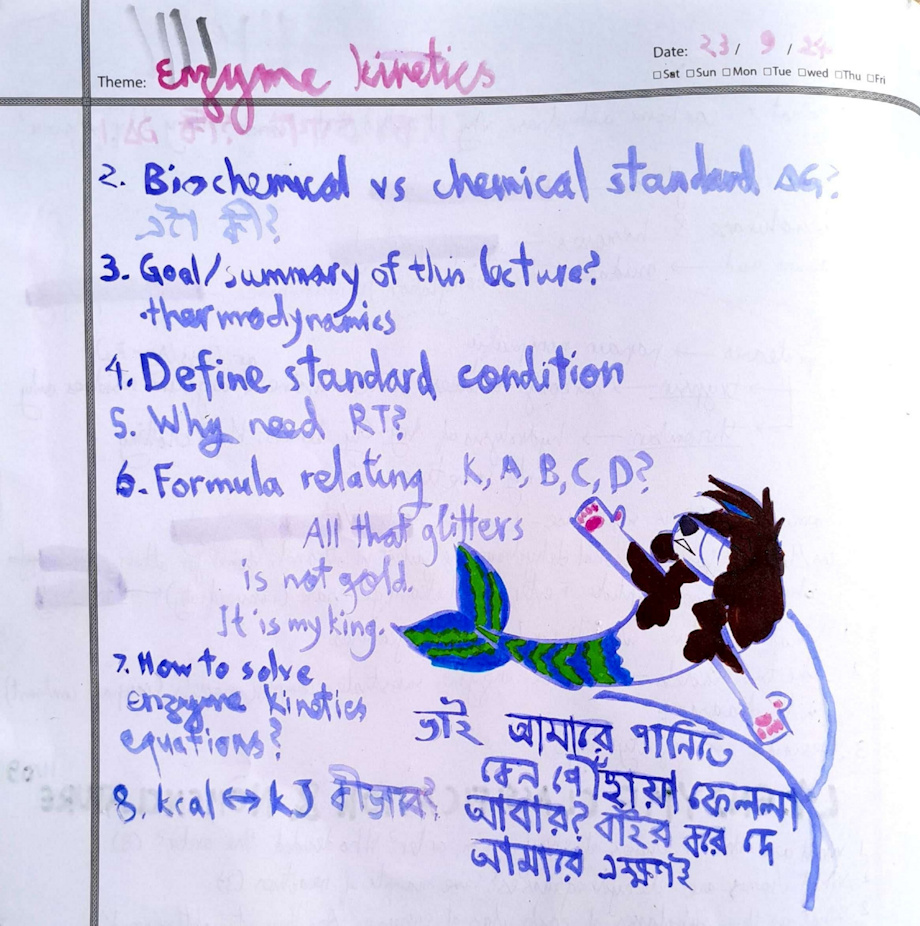 Theme: Enzyme kinetics
Date: 23 / 9 / 24
Sat Sun Mon Tue wed Thu Fri
2. Biochemical vs chemical standard ΔG?
এটা কী?
3. Goal/summary of this lecture?
• thermodynamics
4. Define standard condition
5. Why need RT?
6. Formula relating K, A, B, C, D?
All that glitters
is not gold.
It is my king.
7. How to solve
enzyme kinetics
equations?
8. kcal ↔ kJ কীভাবে?
ভাই আমারে পানিতে
কেন পৌঁছায়া ফেললা
আবার? বাইর করে দে
আমারে এক্ষণই